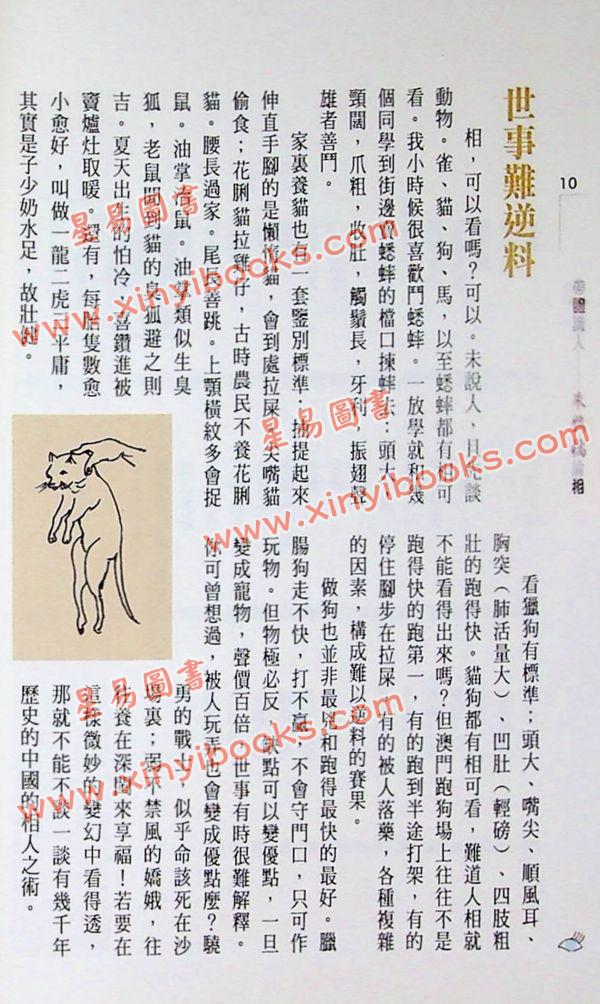 10
世事難逆料
相,可以看嗎?可以。未說人,且先談
動物。雀、貓、狗、馬,以至蟋蟀都有相可
看。我小時候很喜歡鬥蟋蟀。一放學就和幾
個同學到街邊賣蟋蟀的檔口揀蟀去:頭大、
頸闊,爪粗,收肚,觸鬚長,牙利,振翅聲
雄者善鬥。
家裏養貓也有一套鑒別標準:捕提起來
伸直手腳的是懶作貓,會到處拉屎;尖嘴貓
偷食;花脷貓拉雞仔,古時農民不養花脷
貓。腰長過家。尾長善跳。上顎橫紋多會捉
鼠。油掌鼠。油掌類似生臭
狐,老鼠聞到貓的臭狐避之則
吉。夏天出生的怕冷,喜鑽進被
竇爐灶取暖。還有,每胎隻數愈
小愈好,叫做一龍二虎三平庸,
其實是子少奶水足,故壯健。
看獵狗有標準;頭大、嘴尖、順風耳、
胸突(肺活量大)、凹肚(輕磅)、四肢粗
壯的跑得快。貓狗都有相可看,難道人相就
不能看得出來嗎?但澳門跑狗場上往往不是
跑得快的跑第一,有的跑到半途打架,有的
停住腳步在拉屎,有的被人落藥,各種複雜
的因素,構成難以逆料的賽果。
做狗也並非最兇和跑得最快的最好。臘
腸狗走不快,打不贏,不會守門口,只可作
玩物。但物極必反,缺點可以變優點,一旦
變成寵物,聲價百倍。世事有時很難解釋。
你可曾想過,被人玩弄也會變成優點麼?驍
勇的戰士,似乎命該死在沙
場裏;弱不禁風的嬌娥,往
往養在深閨來享福!若要在
這樣微妙的變幻中看得透,
那就不能不談一談有幾千年
歷史的中國的相人之術。
星易圖書
www.xinyibooks.com
星易圖書
www.xinyibooks.com
星易圖書
www.xinyibooks.com
星易圖書
www.xinyibooks.com